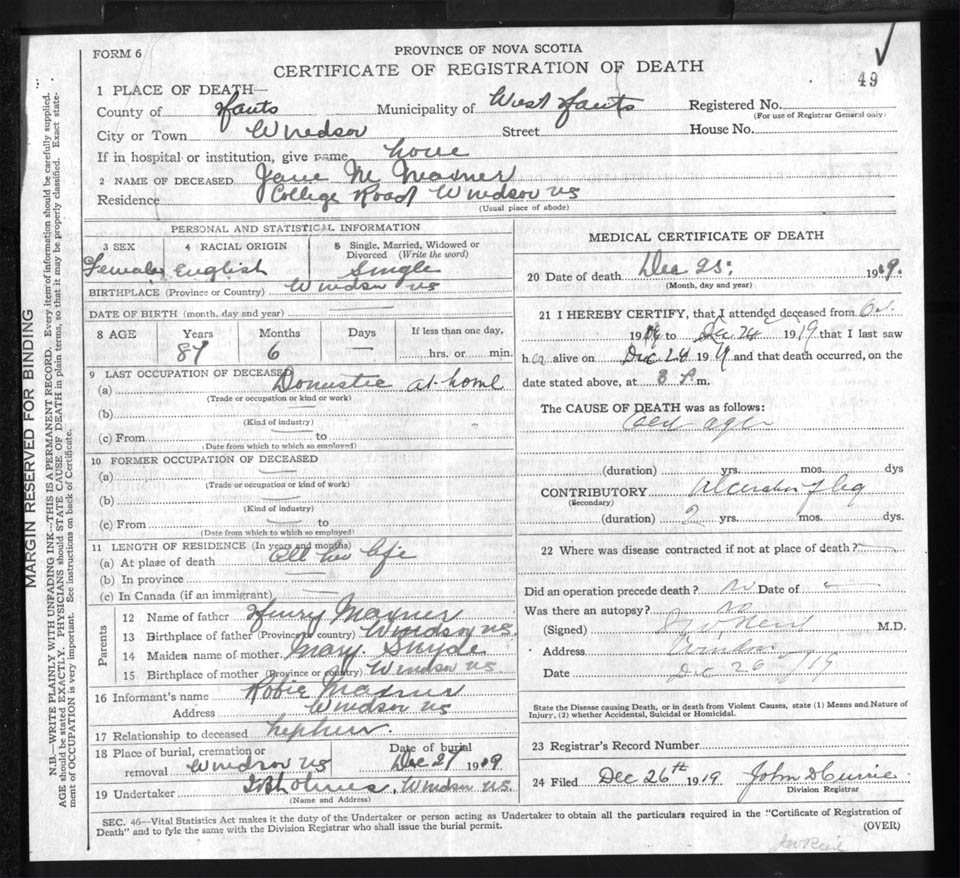 FORM 6
PROVINCE OF NOVA SCOTIA
CERTIFICATE OF REGISTRATION OF DEATH
49
1 PLACE OF DEATH—
County of Hants Municipality of West Hants Registered No.
(For use of Registrar General only)
City or Town Windsor Street House No.
If in hospital or institution, give name
2 NAME OF DECEASED Jane M Maxner
Residence College Road Windsor NS
(Usual place of abode)
PERSONAL AND STATISTICAL INFORMATION
3 SEX 4 RACIAL ORIGIN 5 Single, Married, Widowed or Divorced (Write the word)
Female English Single
BIRTHPLACE (Province or Country) Windsor NS
DATE OF BIRTH (month, day and year)
8 AGE Years Months Days If less than one day,
87 6 — hrs. or min.
9 LAST OCCUPATION OF DECEASED
(a) Domestic at home
(Trade or occupation or kind or work)
(b)
(Kind of industry)
(c) From to
(Date from which to which so employed)
10 FORMER OCCUPATION OF DECEASED
(a)
(Trade or occupation or kind of work)
(b)
(Kind of industry)
(c) From to
(Date from which to which employed)
11 LENGTH OF RESIDENCE (In years and months)
(a) At place of death All her life
(b) In province
(c) In Canada (if an immigrant)
Parents
12 Name of father Henry Maxner
13 Birthplace of father (Province or country) Windsor NS.
14 Maiden name of mother Mary Snyde
15 Birthplace of mother (Province or country) Windsor NS
16 Informant's name Robie Maxner
Address Windsor NS
17 Relationship to deceased nephew.
18 Place of burial, cremation or removal Windsor NS Date of burial Dec 27 1919
19 Undertaker Windsor NS.
(Name and Address)
MEDICAL CERTIFICATE OF DEATH
20 Date of death Dec 25: 1919.
(Month, day and year)
21 I HEREBY CERTIFY, that I attended deceased from
1919 to Dec 24 1919 that I last saw
her alive on Dec 24 19 and that death occurred, on the
date stated above, at 8 P. m.
The CAUSE OF DEATH was as follows:
old age
(duration) yrs. mos. dys
CONTRIBUTORY Ulceration of leg
(Secondary)
(duration) 2 yrs. mos. dys.
22 Where was disease contracted if not at place of death?
Did an operation precede death? no Date of
Was there an autopsy? no
(Signed) M.D.
Address Windsor
Date Dec 26 /19
State the Disease causing Death, or in death from Violent Causes, state (1) Means and Nature of
Injury, (2) whether Accidental, Suicidal or Homicidal.
23 Registrar's Record Number
24 Filed Dec 26th 1919 John D Currie
Division Registrar
SEC. 46—Vital Statistics Act makes it the duty of the Undertaker or person acting as Undertaker to obtain all the particulars required in the "Certificate of Registration of
Death" and to fyle the same with the Division Registrar who shall issue the burial permit.
(OVER)
MARGIN RESERVED FOR BINDING
N.B.—WRITE PLAINLY WITH UNFADING INK—THIS IS A PERMANENT RECORD. Every item of information should be carefully supplied.
AGE should be stated EXACTLY. PHYSICIANS should STATE CAUSE OF DEATH in plain terms, so that it may be properly classified. Exact state-
ment of OCCUPATION is very important. See instructions on back of Certificate.